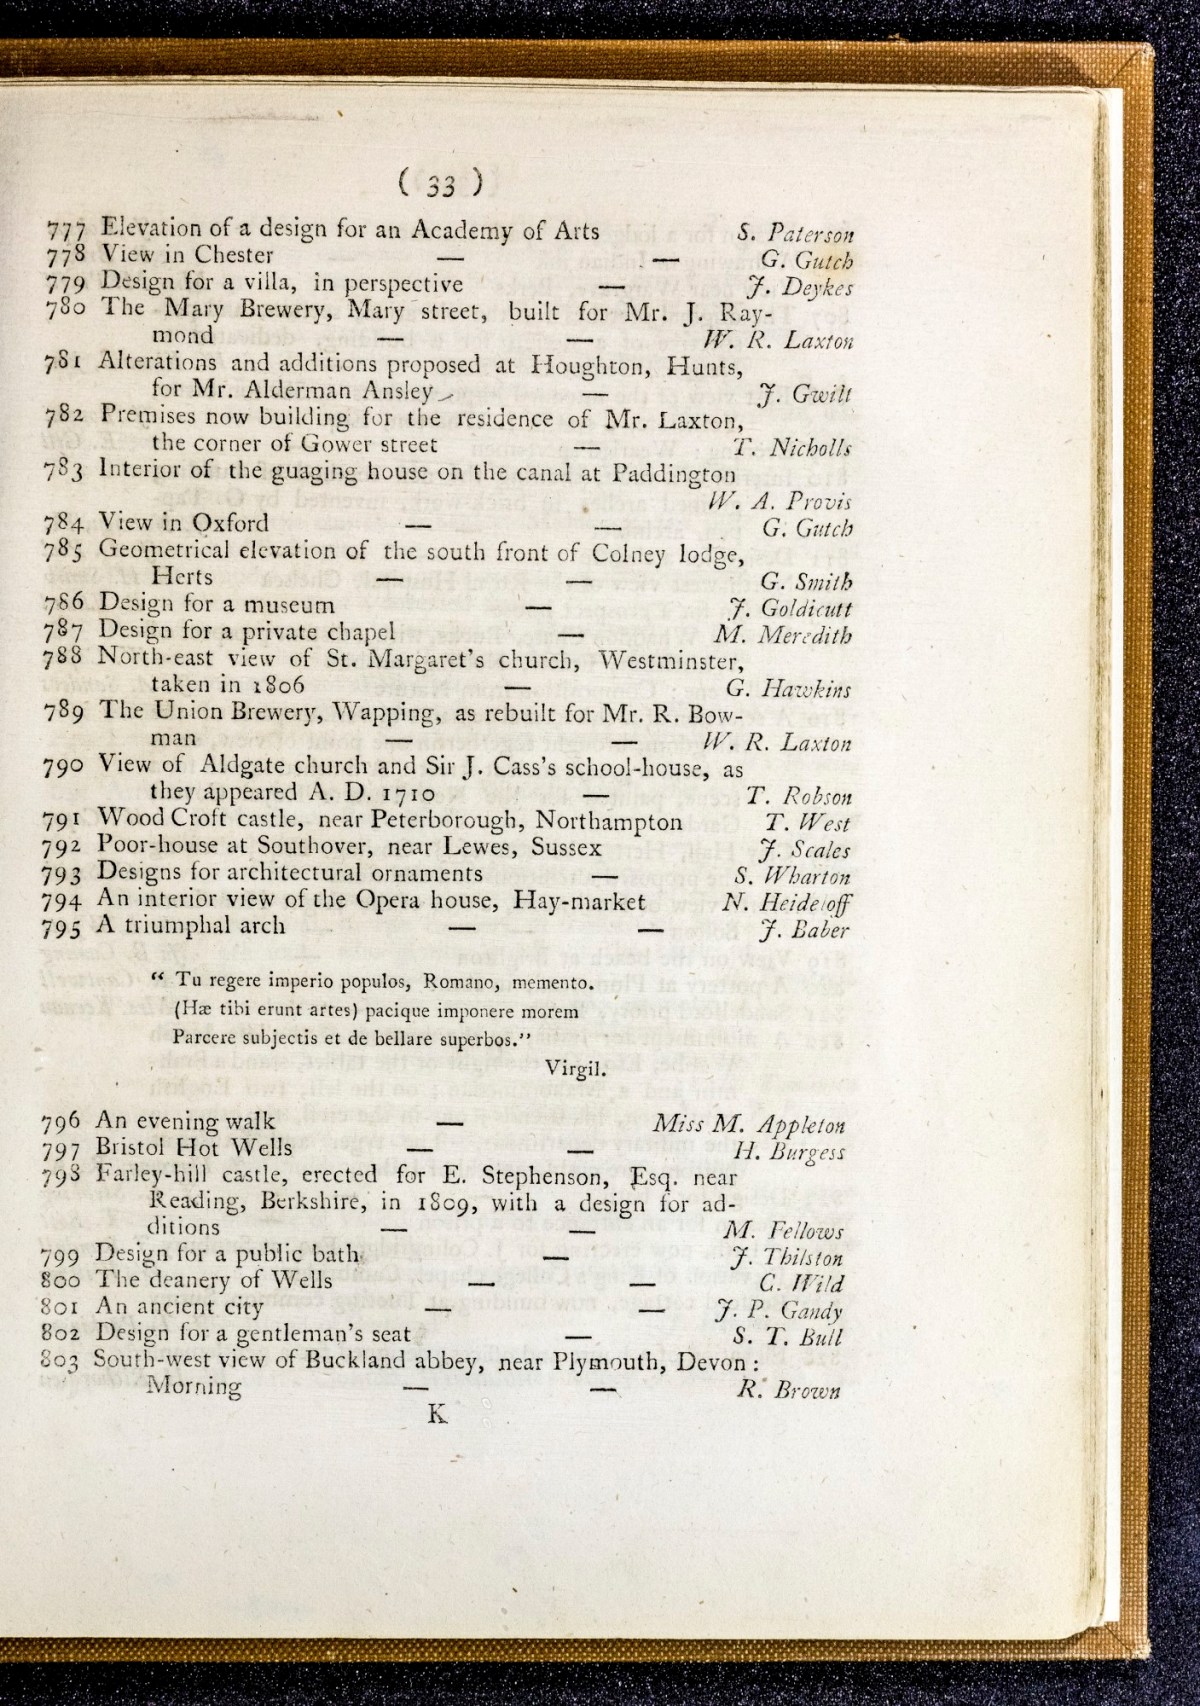 ( 33 )
777 Elevation of a design for an Academy of Arts S. Paterson
778 View in Chester — — G. Gutch
779 Design for a villa, in perspective — J. Deykes
780 The Mary Brewery, Mary street, built for Mr. J. Ray-
mond — — W. R. Laxton
781 Alterations and additions proposed at Houghton, Hunts,
for Mr. Alderman Ansley — J. Gwilt
782 Premises now building for the residence of Mr. Laxton,
the corner of Gower street — T. Nicholls
783 Interior of the guaging house on the canal at Paddington
W. A. Provis
784 View in Oxford — — G. Gutch
785 Geometrical elevation of the south front of Colney lodge,
Herts — — G. Smith
786 Design for a museum — J. Goldicutt
787 Design for a private chapel — M. Meredith
788 North-east view of St. Margaret's church, Westminster,
taken in 1806 — G. Hawkins
789 The Union Brewery, Wapping, as rebuilt for Mr. R. Bow-
man — — W. R. Laxton
790 View of Aldgate church and Sir J. Cass's school-house, as
they appeared A. D. 1710 — T. Robson
791 Wood Croft castle, near Peterborough, Northampton T. West
792 Poor-house at Southover, near Lewes, Sussex J. Scales
793 Designs for architectural ornaments — S. Wharton
794 An interior view of the Opera house, Hay-market N. Heideloff
795 A triumphal arch — — J. Baber
“ Tu regere imperio populos, Romano, memento.
(Hæ tibi erunt artes) pacique imponere morem
Parcere subjectis et de bellare superbos.”
Virgil.
796 An evening walk — Miss M. Appleton
797 Bristol Hot Wells — — H. Burgess
798 Farley-hill castle, erected for E. Stephenson, Esq. near
Reading, Berkshire, in 1809, with a design for ad-
ditions — — M. Fellows
799 Design for a public bath — J. Thilston
800 The deanery of Wells — — C. Wild
801 An ancient city — — J. P. Gandy
802 Design for a gentleman's seat — S. T. Bull
803 South-west view of Buckland abbey, near Plymouth, Devon :
Morning — — R. Brown
K